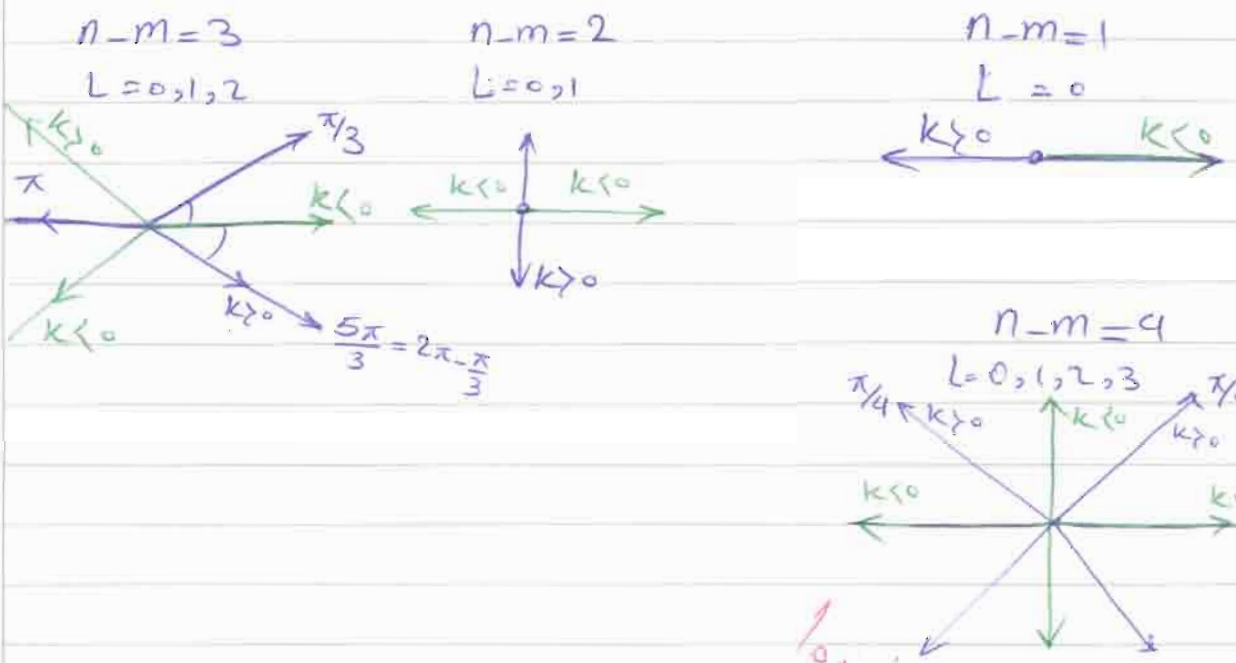 n-m=3
L=0,1,2
k>0
π/3
π
k<0
k<0
k>0
5π/3 = 2π-π/3
n-m=2
L=0,1
k<0 k<0
k>0
n-m=1
L=0
k>0 k<0
n-m=4
L=0,1,2,3
π/4 k>0
k<0
k>0
k<0